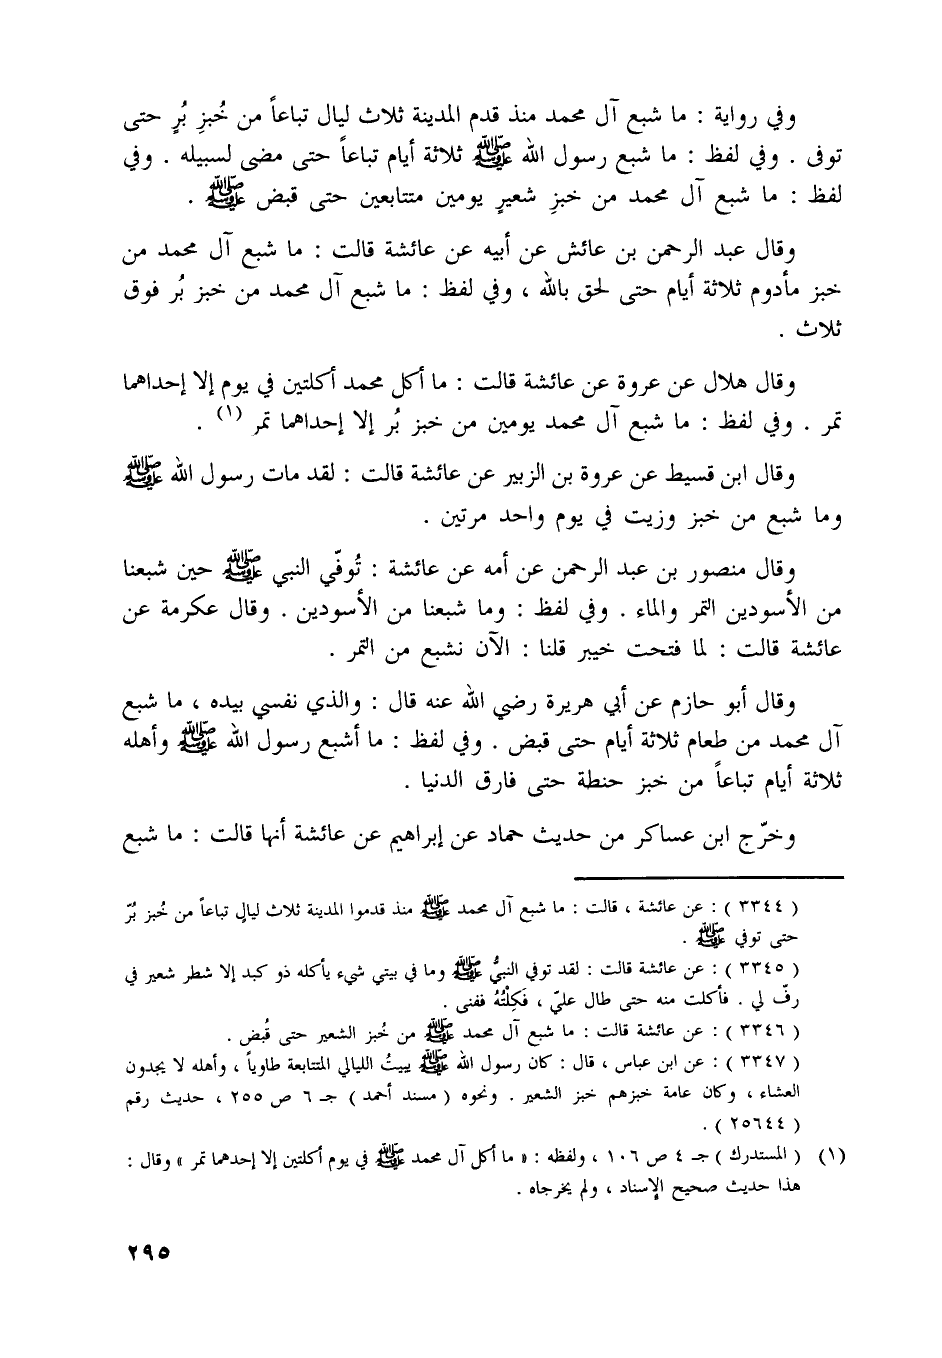 وفي رواية : ما شبع آل محمد منذ قدم المدينة ثلاث ليال تباعاً من خُبزِ بُرٍ حتى
توفى . وفي لفظ : ما شبع رسول الله ﷺ ثلاثة أيام تباعاً حتى مضى لسبيله . وفي
لفظ : ما شبع آل محمد من خبزِ شعيرٍ يومين متتابعين حتى قبض ﷺ .
وقال عبد الرحمن بن عائش عن أبيه عن عائشة قالت : ما شبع آل محمد من
خبز مأدوم ثلاثة أيام حتى لحق بالله ، وفي لفظ : ما شبع آل محمد من خبز بُر فوق
ثلاث .
وقال هلال عن عروة عن عائشة قالت : ما أكل محمد أكلتين في يوم إلا إحداهما
تمر . وفي لفظ : ما شبع آل محمد يومين من خبز بُر إلا إحداهما تمر (١) .
وقال ابن قسيط عن عروة بن الزبير عن عائشة قالت : لقد مات رسول الله ﷺ
وما شبع من خبز وزيت في يوم واحد مرتين .
وقال منصور بن عبد الرحمن عن أمه عن عائشة : تُوفّي النبي ﷺ حين شبعنا
من الأسودين التمر والماء . وفي لفظ : وما شبعنا من الأسودين . وقال عكرمة عن
عائشة قالت : لما فتحت خيبر قلنا : الآن نشبع من التمر .
وقال أبو حازم عن أبي هريرة رضي الله عنه قال : والذي نفسي بيده ، ما شبع
آل محمد من طعام ثلاثة أيام حتى قبض . وفي لفظ : ما أشبع رسول الله ﷺ وأهله
ثلاثة أيام تباعاً من خبز حنطة حتى فارق الدنيا .
وخرّج ابن عساكر من حديث حماد عن إبراهيم عن عائشة أنها قالت : ما شبع
( ٣٣٤٤ ) : عن عائشة ، قالت : ما شبع آل محمد ﷺ منذ قدموا المدينة ثلاث ليالٍ تباعاً من خُبز بُرّ
حتى توفي ﷺ .
( ٣٣٤٥ ) : عن عائشة قالت : لقد توفي النبيُّ ﷺ وما في بيتي شيء يأكله ذو كبد إلا شطر شعير في
رفّ لي . فأكلت منه حتى طال عليّ ، فَكِلْتُهُ ففنى .
( ٣٣٤٦ ) : عن عائشة قالت : ما شبع آل محمد ﷺ من خُبز الشعير حتى قُبض .
( ٣٣٤٧ ) : عن ابن عباس ، قال : كان رسول الله ﷺ يبيتُ الليالي المتتابعة طاوياً ، وأهله لا يجدون
العشاء ، وكان عامة خبزهم خبز الشعير . ونحوه ( مسند أحمد ) جـ ٦ ص ٢٥٥ ، حديث رقم
( ٢٥٦٤٤ ) .
(١) ( المستدرك ) جـ ٤ ص ١٠٦ ، ولفظه : « ما أكل آل محمد ﷺ في يوم أكلتين إلا إحدهما تمر » وقال :
هذا حديث صحيح الإسناد ، ولم يخرجاه .
٢٩٥